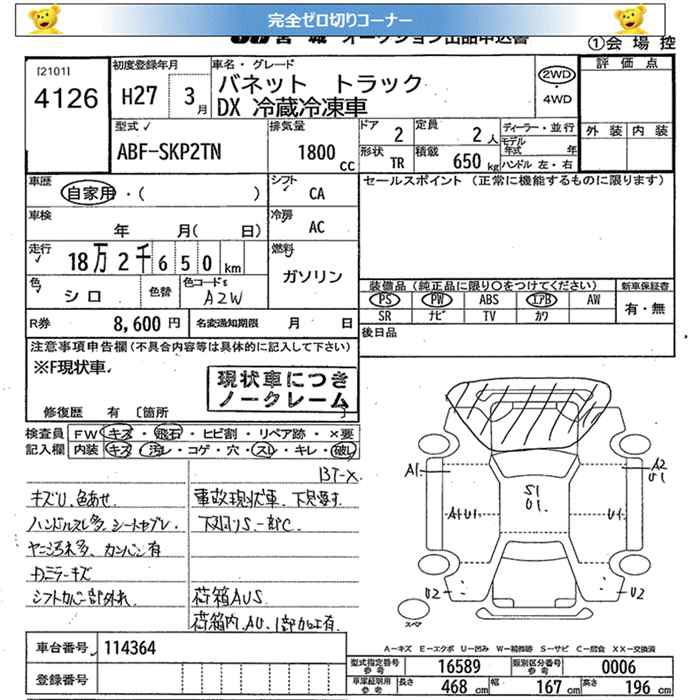 完全ゼロ切りコーナー
宮城 オークション出品申込書
①会場控
[2101]
4126
初度登録年月
H27 3月
車名・グレード
バネット トラック
DX 冷蔵冷凍車
2WD
・
4WD
評価点
外装 内装
型式
ABF-SKP2TN
排気量
1800 cc
ドア 2
定員 2人
形状 TR
積載 650 kg
ディーラー・並行
モデル年式 年
ハンドル 左・右
車歴
自家用・( )
シフト
CA
セールスポイント (正常に機能するものに限ります)
車検
年 月( 日)
冷房
AC
走行
18万2千650km
燃料
ガソリン
色
シロ
色替
色コード
A2W
R券 8,600円
名変通知期限 月 日
装備品(純正品に限り○をつけてください)
新車保証書
PS PW ABS エアB AW
有・無
SR ナビ TV カワ
後日品
注意事項申告欄(不具合内容等は具体的に記入して下さい)
※F現状車.
現状車につき
ノークレーム
修復歴 有 〔箇所
検査員
記入欄
FW キズ・飛石・ヒビ割・リペア跡・×要
内装 キズ・汚レ・コゲ・穴・スレ・キレ・破レ
キズU.色あせ.
事故現状車.下見要す.
ハンドルスレ多.シートヤブレ.
下廻りS.一部C.
ヤニ汚れ多.カンバン有
Dミラーキズ
シフトカバー一部外れ
荷箱AUS.
荷箱内.AU.1部カエ有.
A1
A2
U1
A1U1
S1
U1.
U1.
U2
U2
スペア
車台番号 114364
登録番号
A−キズ E−エクボ U−凹み W−補修跡 S−サビ C−腐食 XX−交換済
型式指定番号 参考 16589
類別区分番号 参考 0006
車庫証明用 参考
長さ 468 cm
幅 167 cm
高さ 196 cm